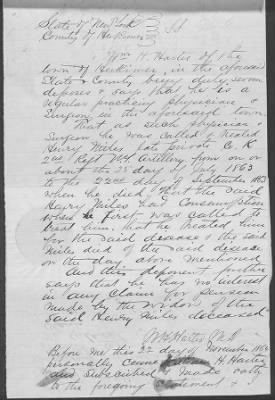 State of New York } ss
County of Herkimer }
Wm H. Harter of the
town of Herkimer, in the aforesaid
State & County being duly sworn
deposes & says that he is a
regular practicing physician &
Surgeon in the aforesaid town
That as such physician &
Surgeon he was called & treated
Henry Miles late private Co. K
2nd Regt NY Artillery from on or
about the 28 day of July 1863
to the 22nd day of September 1863
when he died. That the said
Henry Miles had Consumption
when he first was called to
treat him, that he treated him
for the said disease & the said
Miles died of the said disease
on the day above mentioned
And this deponent further
says that he has no interest
in any Claim for pension
made by the widow of the
said Henry Miles deceased
W H Harter M.D.
Before me this day of November
personally came H. Harter
and Subscribed & made oath
to the foregoing Statement &